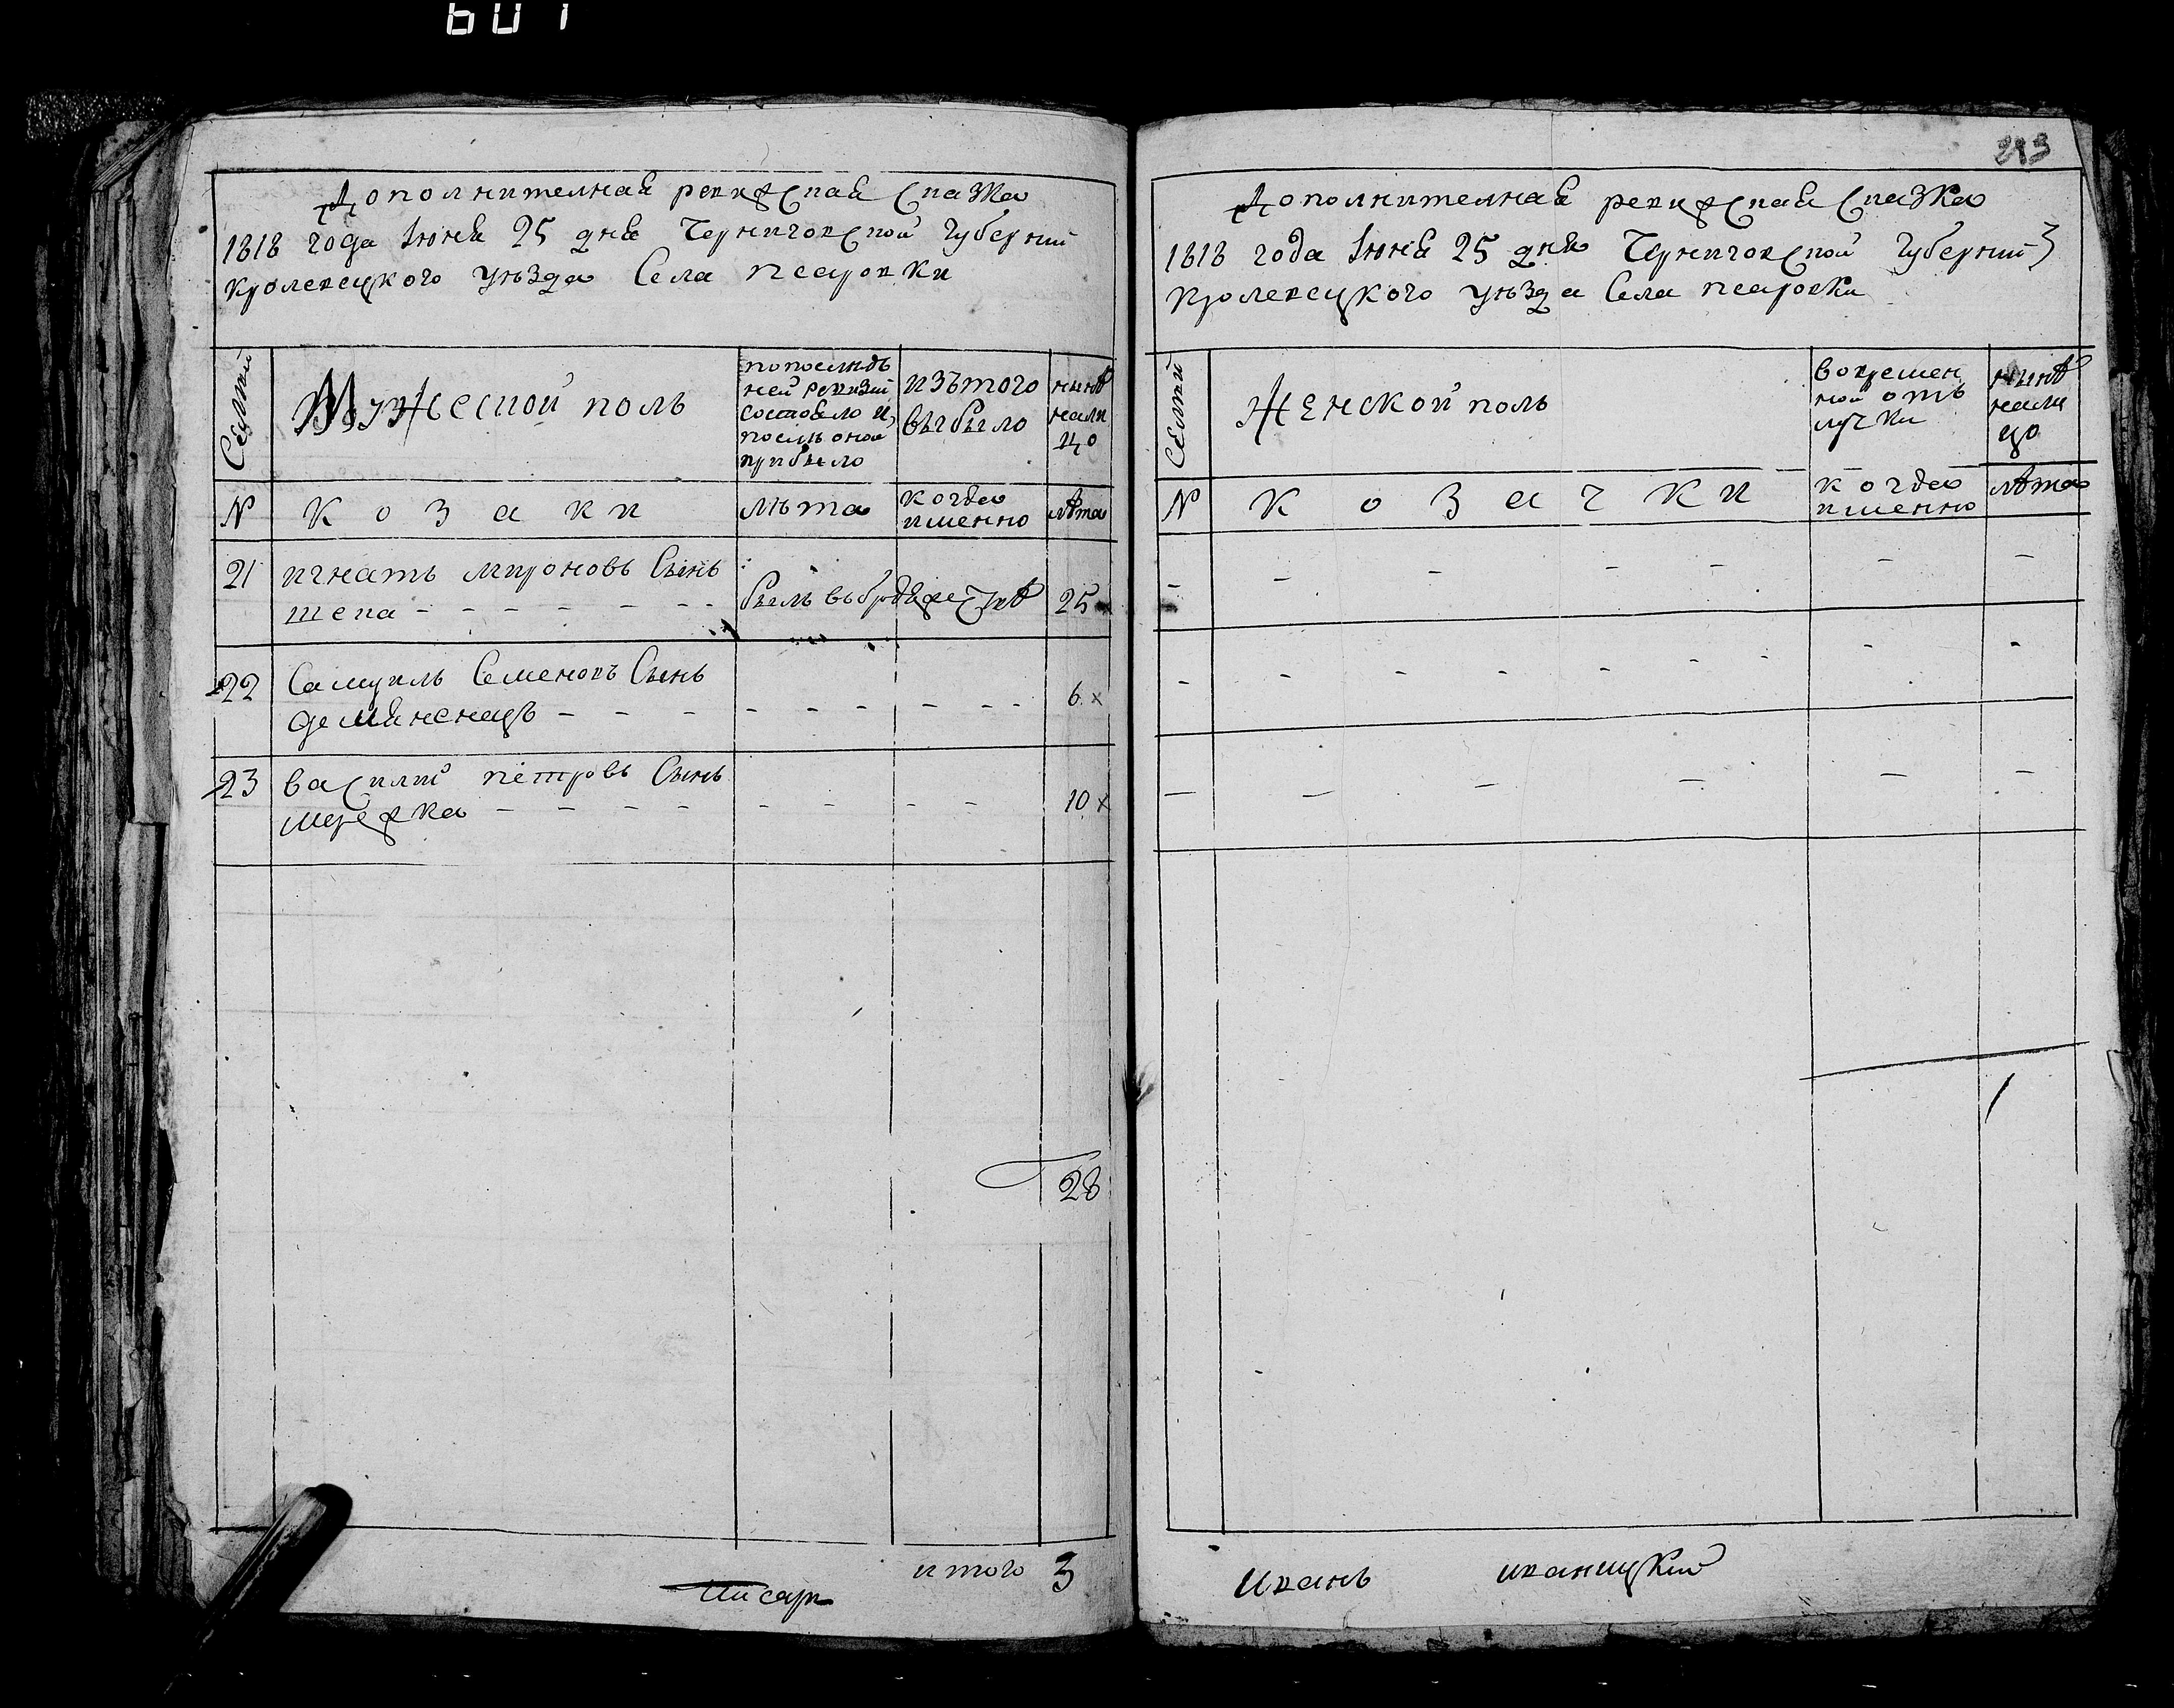 601
Дополнителная ревизская сказка
1818 года Июня 25 дня Черниговской Губернии
кролевецкого уѣзда Села псаровки
Семьи
Мужеской полъ
попослѣд
ней ревизии
состояло и
послѣ оной
прибыло
изътого
выбыло
нынѣ
нали
цо
№
козаки
лѣта
когда
именно
лѣта
21
игнатъ мироновъ Сынъ
шепа
былъ въ бродяжествѣ
25
22
Самуилъ Семеновъ Сынъ
6 х
23
василий петровъ Сынъ
мережка
10 х
28
итого 3
Писарь
293
Дополнителная ревизская сказка
1818 года Июня 25 дня Черниговской Губернии
Кролевецкого уѣзда Села псаровки
Семьи
Женской полъ
вовремен
ной отъ
лучки
нынѣ
нали
цо
№
козачки
когда
именно
лѣта
Иванъ иваницкий